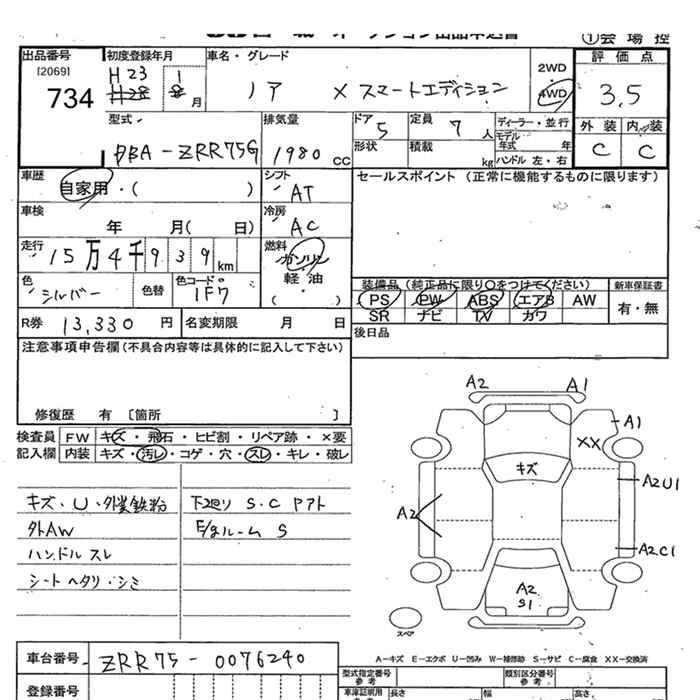 ①会場控
出品番号 初度登録年月 車名・グレード 評価点
[2069] H23 1月
734 ノア X スマートエディション 2WD 4WD 3,5
型式 排気量 ドア 5 定員 7人 ディーラー・並行 外装 内装
DBA-ZRR75G 1980 CC 形状 積載 kg モデル年式 年 ハンドル 左・右 C C
車歴 自家用・( ) シフト AT セールスポイント (正常に機能するものに限ります)
車検 年 月( 日) 冷房 AC
走行 15万4千939km 燃料 ガソリン 軽油 ( )
色 シルバー 色替 色コード 1F7 装備品 (純正品に限り○をつけてください) 新車保証書
PS PW ABS エアB AW 有・無
SR ナビ TV カワ
R券 13,330円 名変期限 月 日 後日品
注意事項申告欄(不具合内容等は具体的に記入して下さい)
修復歴 有 [箇所 ]
検査員 FW キズ・飛石・ヒビ割・リペア跡・×要
記入欄 内装 キズ・汚レ・コゲ・穴・スレ・キレ・破レ
キズ・U・外装鉄粉 下廻り S・C Pアト
外AW E/gルーム S
ハンドル スレ
シートヘタリ・シミ
A2 A1
A1
XX
キズ
A2U1
A2
A2C1
A2
S1
スペア
車台番号 ZRR75-0076240
A-キズ E-エクボ U-凹み W-補修跡 S-サビ C-腐食 XX-交換済
登録番号 型式指定番号 参考 類別区分番号 参考
車庫証明用 参考 長さ 幅 高さ